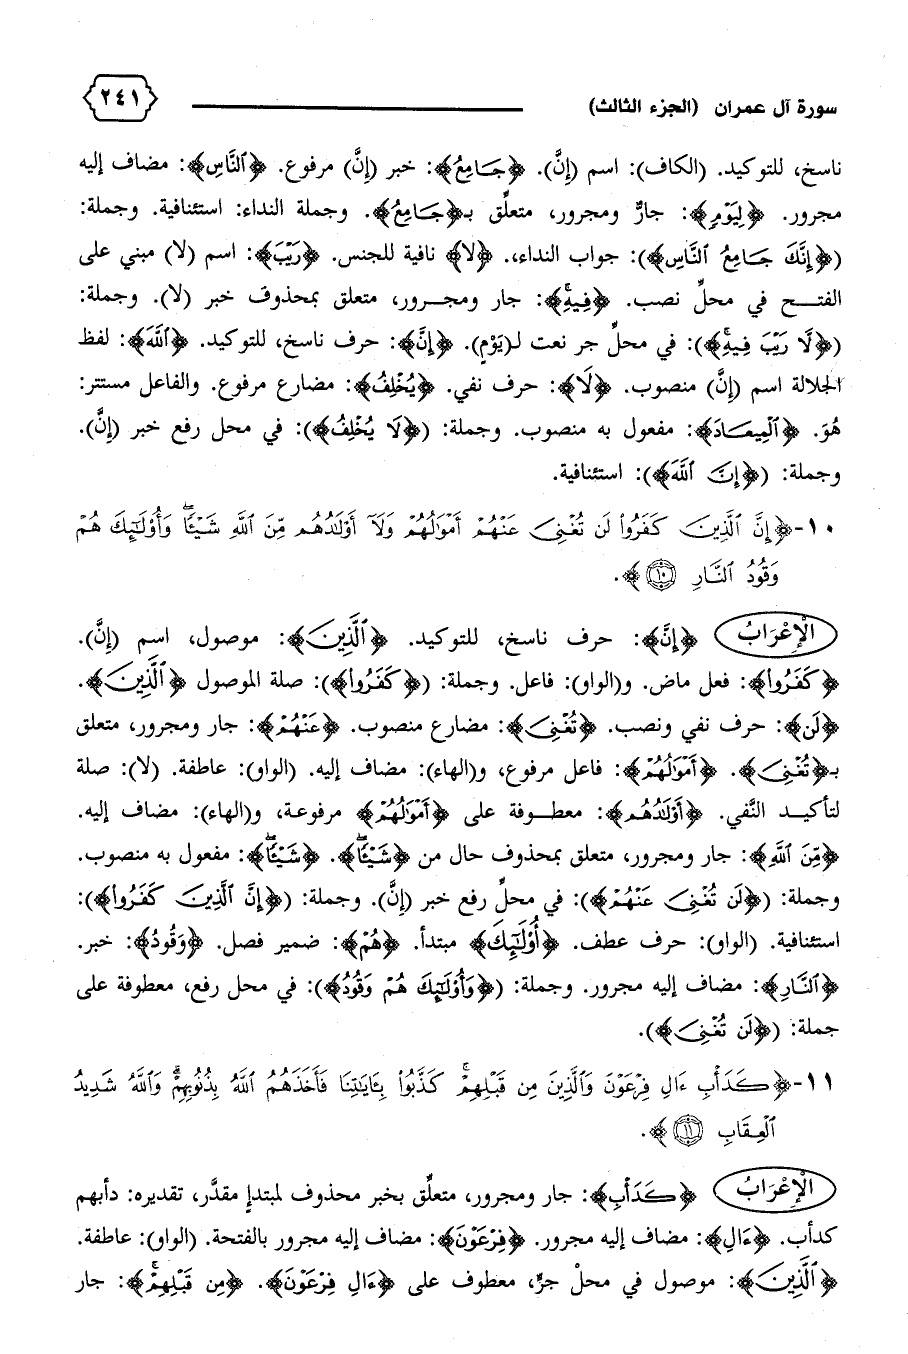 سورة آل عمران (الجزء الثالث) ٢٤١
ناسخ، للتوكيد. (الكاف): اسم (إنَّ). ﴿جَامِعُ﴾: خبر (إنَّ) مرفوع. ﴿ٱلنَّاسِ﴾: مضاف إليه
مجرور. ﴿لِيَوْمٍ﴾: جارٌّ ومجرور، متعلِّق بـ﴿جَامِعُ﴾. وجملة النداء: استئنافية. وجملة:
(﴿إِنَّكَ جَامِعُ ٱلنَّاسِ﴾): جواب النداء،. ﴿لَا﴾ نافية للجنس. ﴿رَيْبَ﴾: اسم (لا) مبني على
الفتح في محلِّ نصب. ﴿فِيهِۚ﴾: جار ومجرور، متعلق بمحذوف خبر (لا). وجملة:
(﴿لَّا رَيْبَ فِيهِۚ﴾): في محلِّ جر نعت لـ(يَوْمٍ). ﴿إِنَّ﴾: حرف ناسخ، للتوكيد. ﴿ٱللَّهَ﴾: لفظ
الجلالة اسم (إنَّ) منصوب. ﴿لَا﴾: حرف نفي. ﴿يُخْلِفُ﴾: مضارع مرفوع. والفاعل مستتر:
هُوَ. ﴿ٱلْمِيعَادَ﴾: مفعول به منصوب. وجملة: (﴿لَا يُخْلِفُ﴾): في محل رفع خبر (إنَّ).
وجملة: (﴿إِنَّ ٱللَّهَ﴾): استئنافية.
١٠-﴿إِنَّ ٱلَّذِينَ كَفَرُوا۟ لَن تُغْنِىَ عَنْهُمْ أَمْوَٰلُهُمْ وَلَآ أَوْلَٰدُهُم مِّنَ ٱللَّهِ شَيْـًٔاۖ وَأُو۟لَٰٓئِكَ هُمْ
وَقُودُ ٱلنَّارِ ١٠﴾.
الإِعْرَابُ ﴿إِنَّ﴾: حرف ناسخ، للتوكيد. ﴿ٱلَّذِينَ﴾: موصول، اسم (إنَّ).
﴿كَفَرُوا۟﴾: فعل ماض. و(الواو): فاعل. وجملة: (﴿كَفَرُوا۟﴾): صلة الموصول ﴿ٱلَّذِينَ﴾.
﴿لَن﴾: حرف نفي ونصب. ﴿تُغْنِىَ﴾: مضارع منصوب. ﴿عَنْهُمْ﴾: جار ومجرور، متعلق
بـ﴿تُغْنِىَ﴾. ﴿أَمْوَٰلُهُمْ﴾: فاعل مرفوع، و(الهاء): مضاف إليه. (الواو): عاطفة. (لا): صلة
لتأكيد النَّفي. ﴿أَوْلَٰدُهُم﴾: معطوفة على ﴿أَمْوَٰلُهُمْ﴾ مرفوعة، و(الهاء): مضاف إليه.
﴿مِّنَ ٱللَّهِ﴾: جار ومجرور، متعلق بمحذوف حال من ﴿شَيْـًٔاۖ﴾. ﴿شَيْـًٔاۖ﴾: مفعول به منصوب.
وجملة: (﴿لَن تُغْنِىَ عَنْهُمْ﴾): في محلِّ رفع خبر (إنَّ). وجملة: (﴿إِنَّ ٱلَّذِينَ كَفَرُوا۟﴾):
استئنافية. (الواو): حرف عطف. ﴿أُو۟لَٰٓئِكَ﴾ مبتدأ. ﴿هُمْ﴾: ضمير فصل. ﴿وَقُودُ﴾: خبر.
﴿ٱلنَّارِ﴾: مضاف إليه مجرور. وجملة: (﴿وَأُو۟لَٰٓئِكَ هُمْ وَقُودُ﴾): في محل رفع، معطوفة على
جملة: (﴿لَن تُغْنِىَ﴾).
١١-﴿كَدَأْبِ ءَالِ فِرْعَوْنَ وَٱلَّذِينَ مِن قَبْلِهِمْۚ كَذَّبُوا۟ بِـَٔايَٰتِنَا فَأَخَذَهُمُ ٱللَّهُ بِذُنُوبِهِمْۗ وَٱللَّهُ شَدِيدُ
ٱلْعِقَابِ ١١﴾.
الإِعْرَابُ ﴿كَدَأْبِ﴾: جار ومجرور، متعلِّق بخبر محذوف لمبتدإٍ مقدَّر، تقديره: دأبهم
كدأب. ﴿ءَالِ﴾: مضاف إليه مجرور. ﴿فِرْعَوْنَ﴾: مضاف إليه مجرور بالفتحة. (الواو): عاطفة.
﴿ٱلَّذِينَ﴾: موصول في محلْ جرٍّ، معطوف على ﴿ءَالِ فِرْعَوْنَ﴾. ﴿مِن قَبْلِهِمْۚ﴾: جار